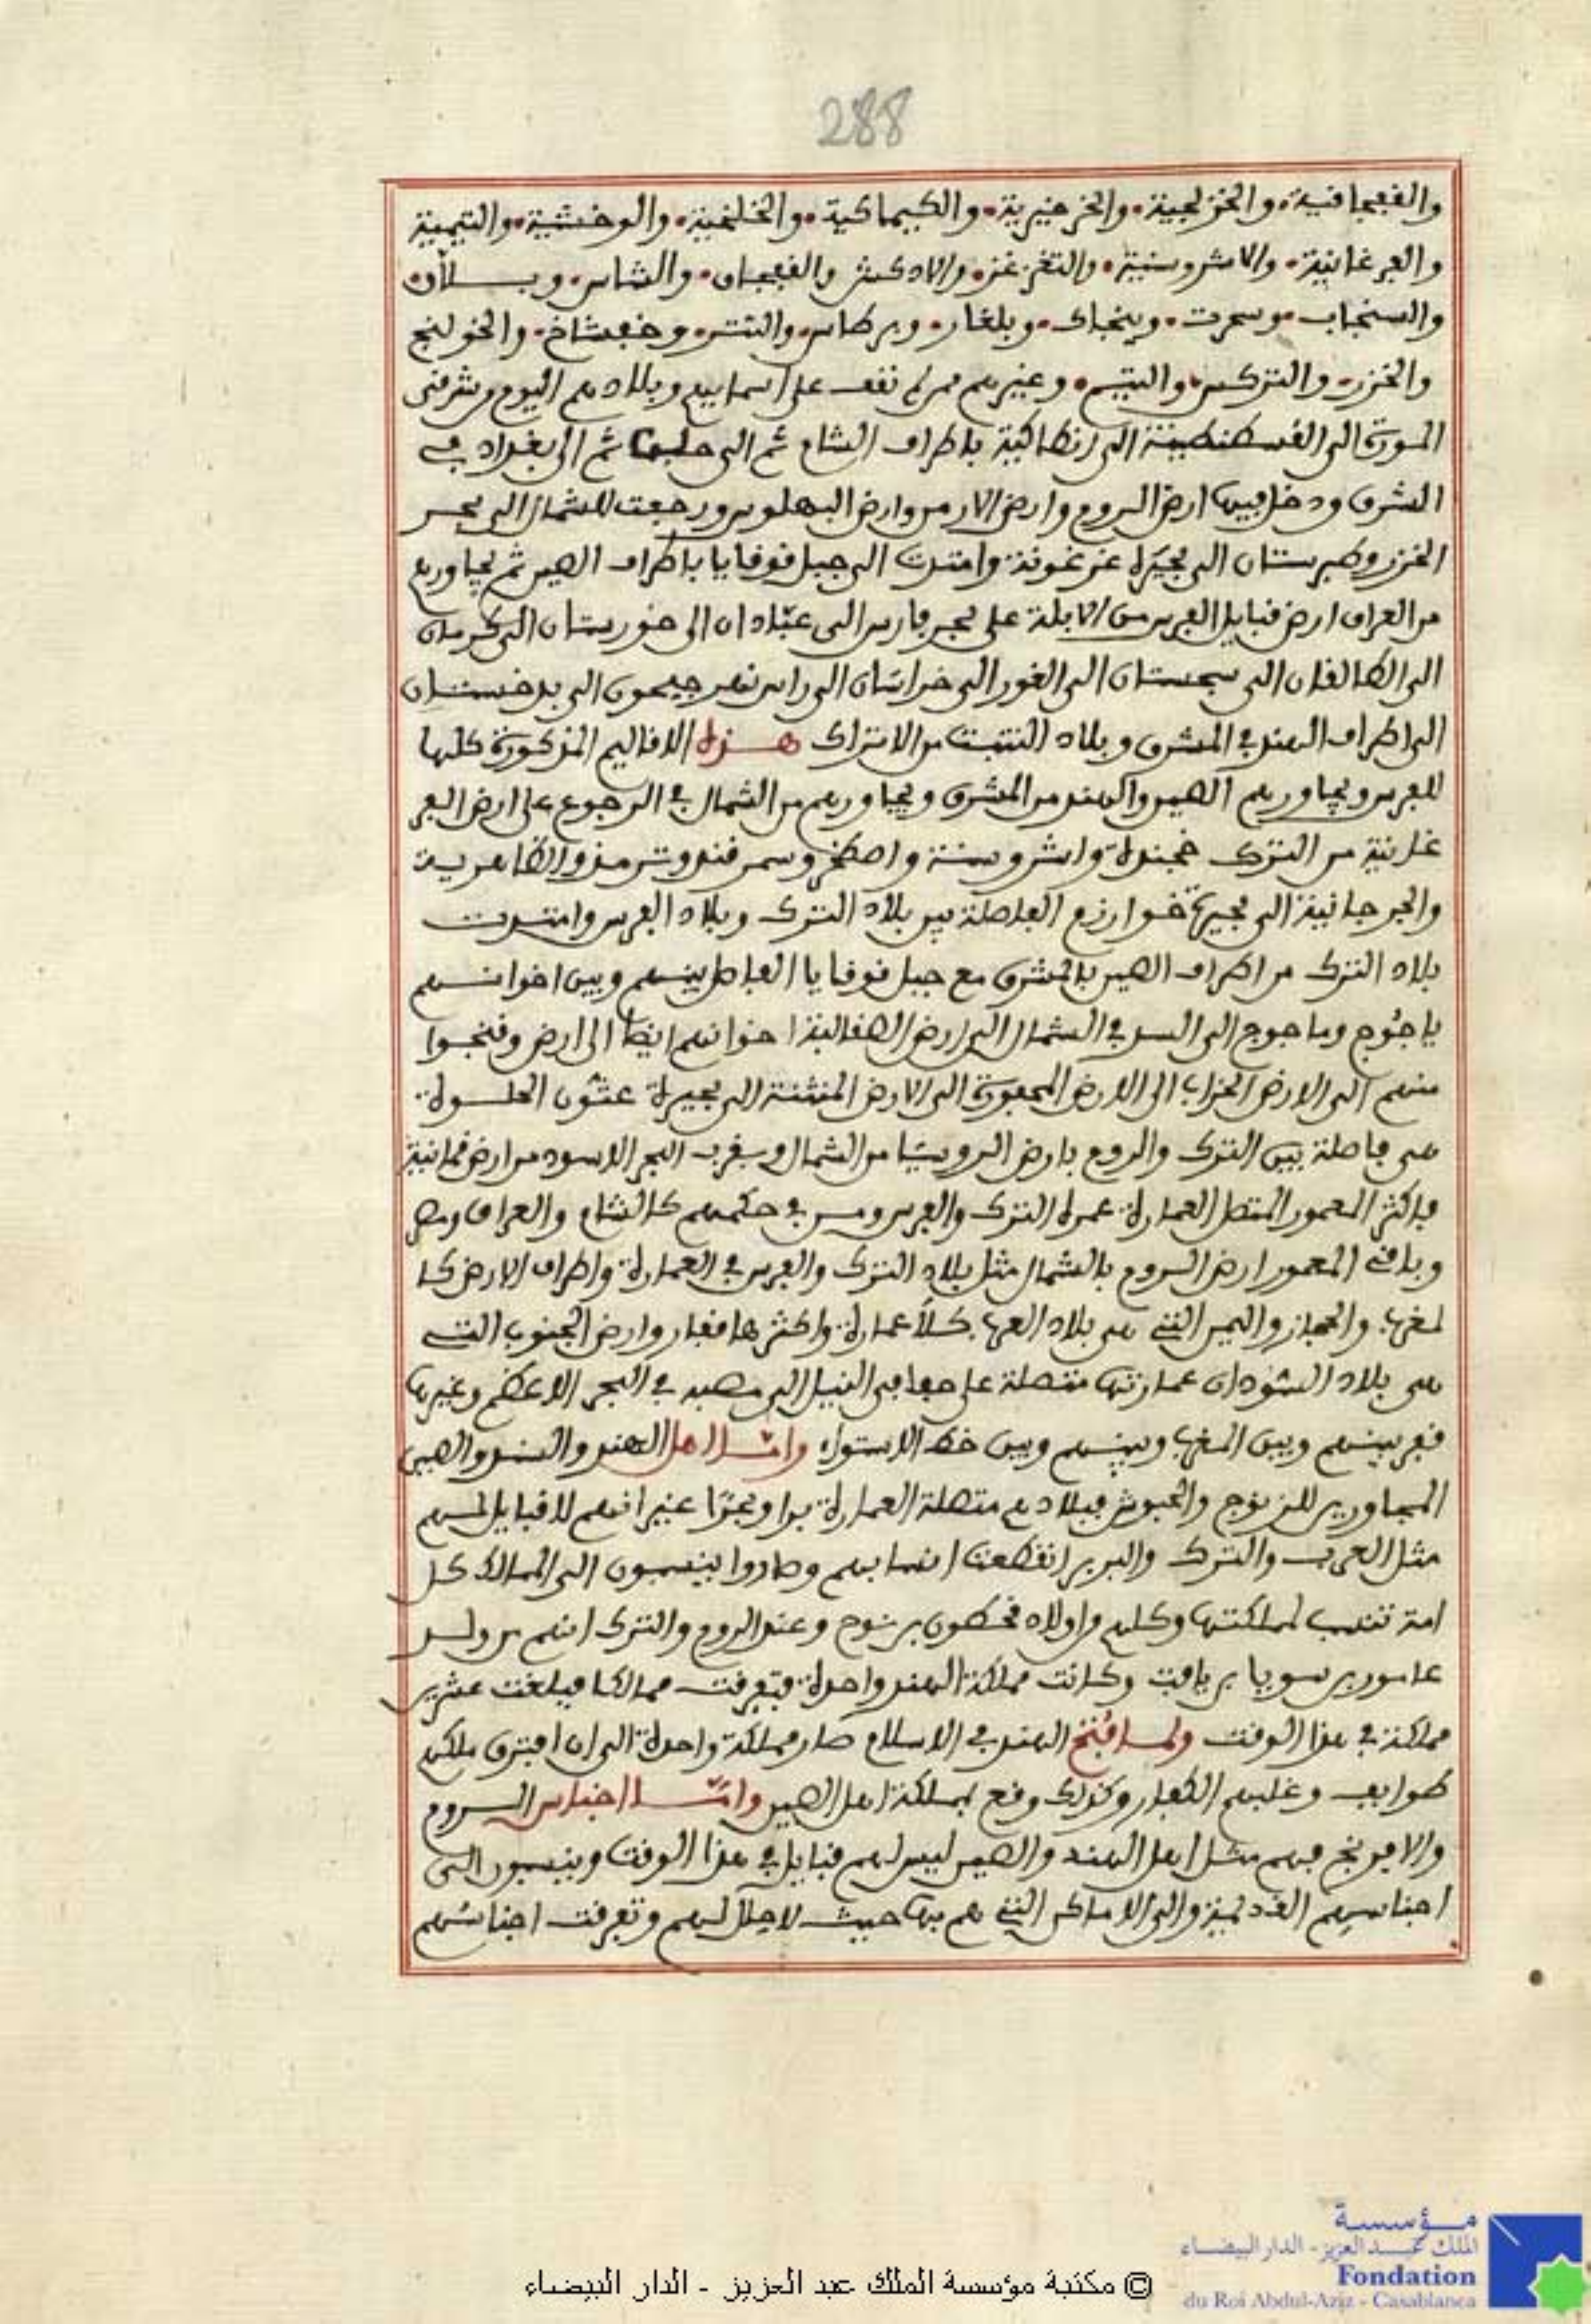 288
والقفجاقية والخزلجية والخرخيرية والكيماكية والخلخية والوخشية والتيمية
والفرغانية والاشروسنية والتغزغز والادكش والقفجاق والشاس وبـــلاق
والسنجاب وسمرت وبنجاك وبلغار وبرطاس والتتر وخفشاخ والخولنج
والخزر والتركس والتبت وغيرهم ممن لم نقف على اسمايهم وبلادهم اليوم من شرقي
المورة الى القسطنطينة الى انطاكية باطراف الشام ثم الى حلب ثم الى بغداد في
الشرق ودخل فيها ارض الروم وارض الارمن وارض البهلوس ورجعت للشمال الى بحر
الخزر وطبرستان الى بحيرة غرغونة وامتدت الى جبل قوفايا باطراف الصين ثم يجاورهم
من العراق ارض قبايل الفرس من الابلة على بحر فارس الى عبادان الى خوزستان الى كرمان
الى الطالقان الى سجستان الى الغور الى خراسان الى راس نهر جيحون الى بدخستان
الى اطراف الهند في المشرق وبلاد التبت من الاتراك هـــذه الاقاليم المذكورة كلها
للفرس ويجاورهم الصين والهند من المشرق ويجاورهم من الشمال في الرجوع على ارض الفر
غانية من الترك خجندة واشروسنة واصطخر وسمرقند وترمذ والطاهرية
والجرجانية الى بحيرة خوارزم الفاصلة بين بلاد الترك وبلاد الفرس وامتدت
بلاد الترك من اطراف الصين بالمشرق مع جبل قوفايا الفاصل بينهم وبين اخوانهم
ياجوج وماجوج الى السد في الشمال الى ارض الصقالبة اخوانهم ايضا الى ارض وفنجوا
منهم الى الارض الخراب الى الارض المحفورة الى الارض المنتنة الى بحيرة عنون الحلـــوة
هي فاصلة بين الترك والروم بارض الروسيا من الشمال وبقرب البحر الاسود من ارض قمانية
فاكثر المعمور المتصل العمارة عمرة الترك والفرس ومن في حكمهم كالشام والعراق ومصر
وباقي المعمور ارض الروم بالشمال مثل بلاد الترك والفرس في العمارة واطراف الارض كا
لمغرب والحجاز واليمن التي هي بلاد العرب كلا عمارة واكثرها قفار وارض الجنوب التي
هي بلاد السودان عمارتها متصلة على حافتي النيل الى مصبه في البحر الاعظم وغيرها
قفر بينهم وبين المغرب وبينهم وبين خط الاستواء وامـــا اهل الهند والسند والصين
المجاورين للزنوج والحبوش فبلادهم متصلة العمارة برا وبحرا غير انهم لا قبايل لهم
مثل العرب والترك والبربر انقطعت انسابهم وصاروا ينسبون الى الممالك كل
امة تنسب لمملكتها وكلهم من اولاد قحطون بن نوح وعند الروم والترك انهم من ولد
عامور بن سويا بن يافت وكانت مملكة الهند واحدة فتفرقت ممالكا فبلغت عشرين
مملكة في هذا الوقت ولمـــا فتح الهند في الاسلام صار مملكة واحدة الى ان افترق ملكهم
طوايف وغلبهم الكفار وكذلك وقع لمملكة اهل الصين وامـــا اجناس الـــروم
والافرنج فهم مثل اهل الهند والصين ليس لهم قبايل في هذا الوقت وينسبون الى
اجناسهم القديمة والى الاماكن التي هم بها حيث لا حلل لهم وتفرقت اجناسهم
مـؤسسة
الملك عبـد العزيز - الدار البيضـاء
Fondation
du Roi Abdul-Aziz - Casablanca
© مكتبة مؤسسة الملك عبد العزيز - الدار البيضاء